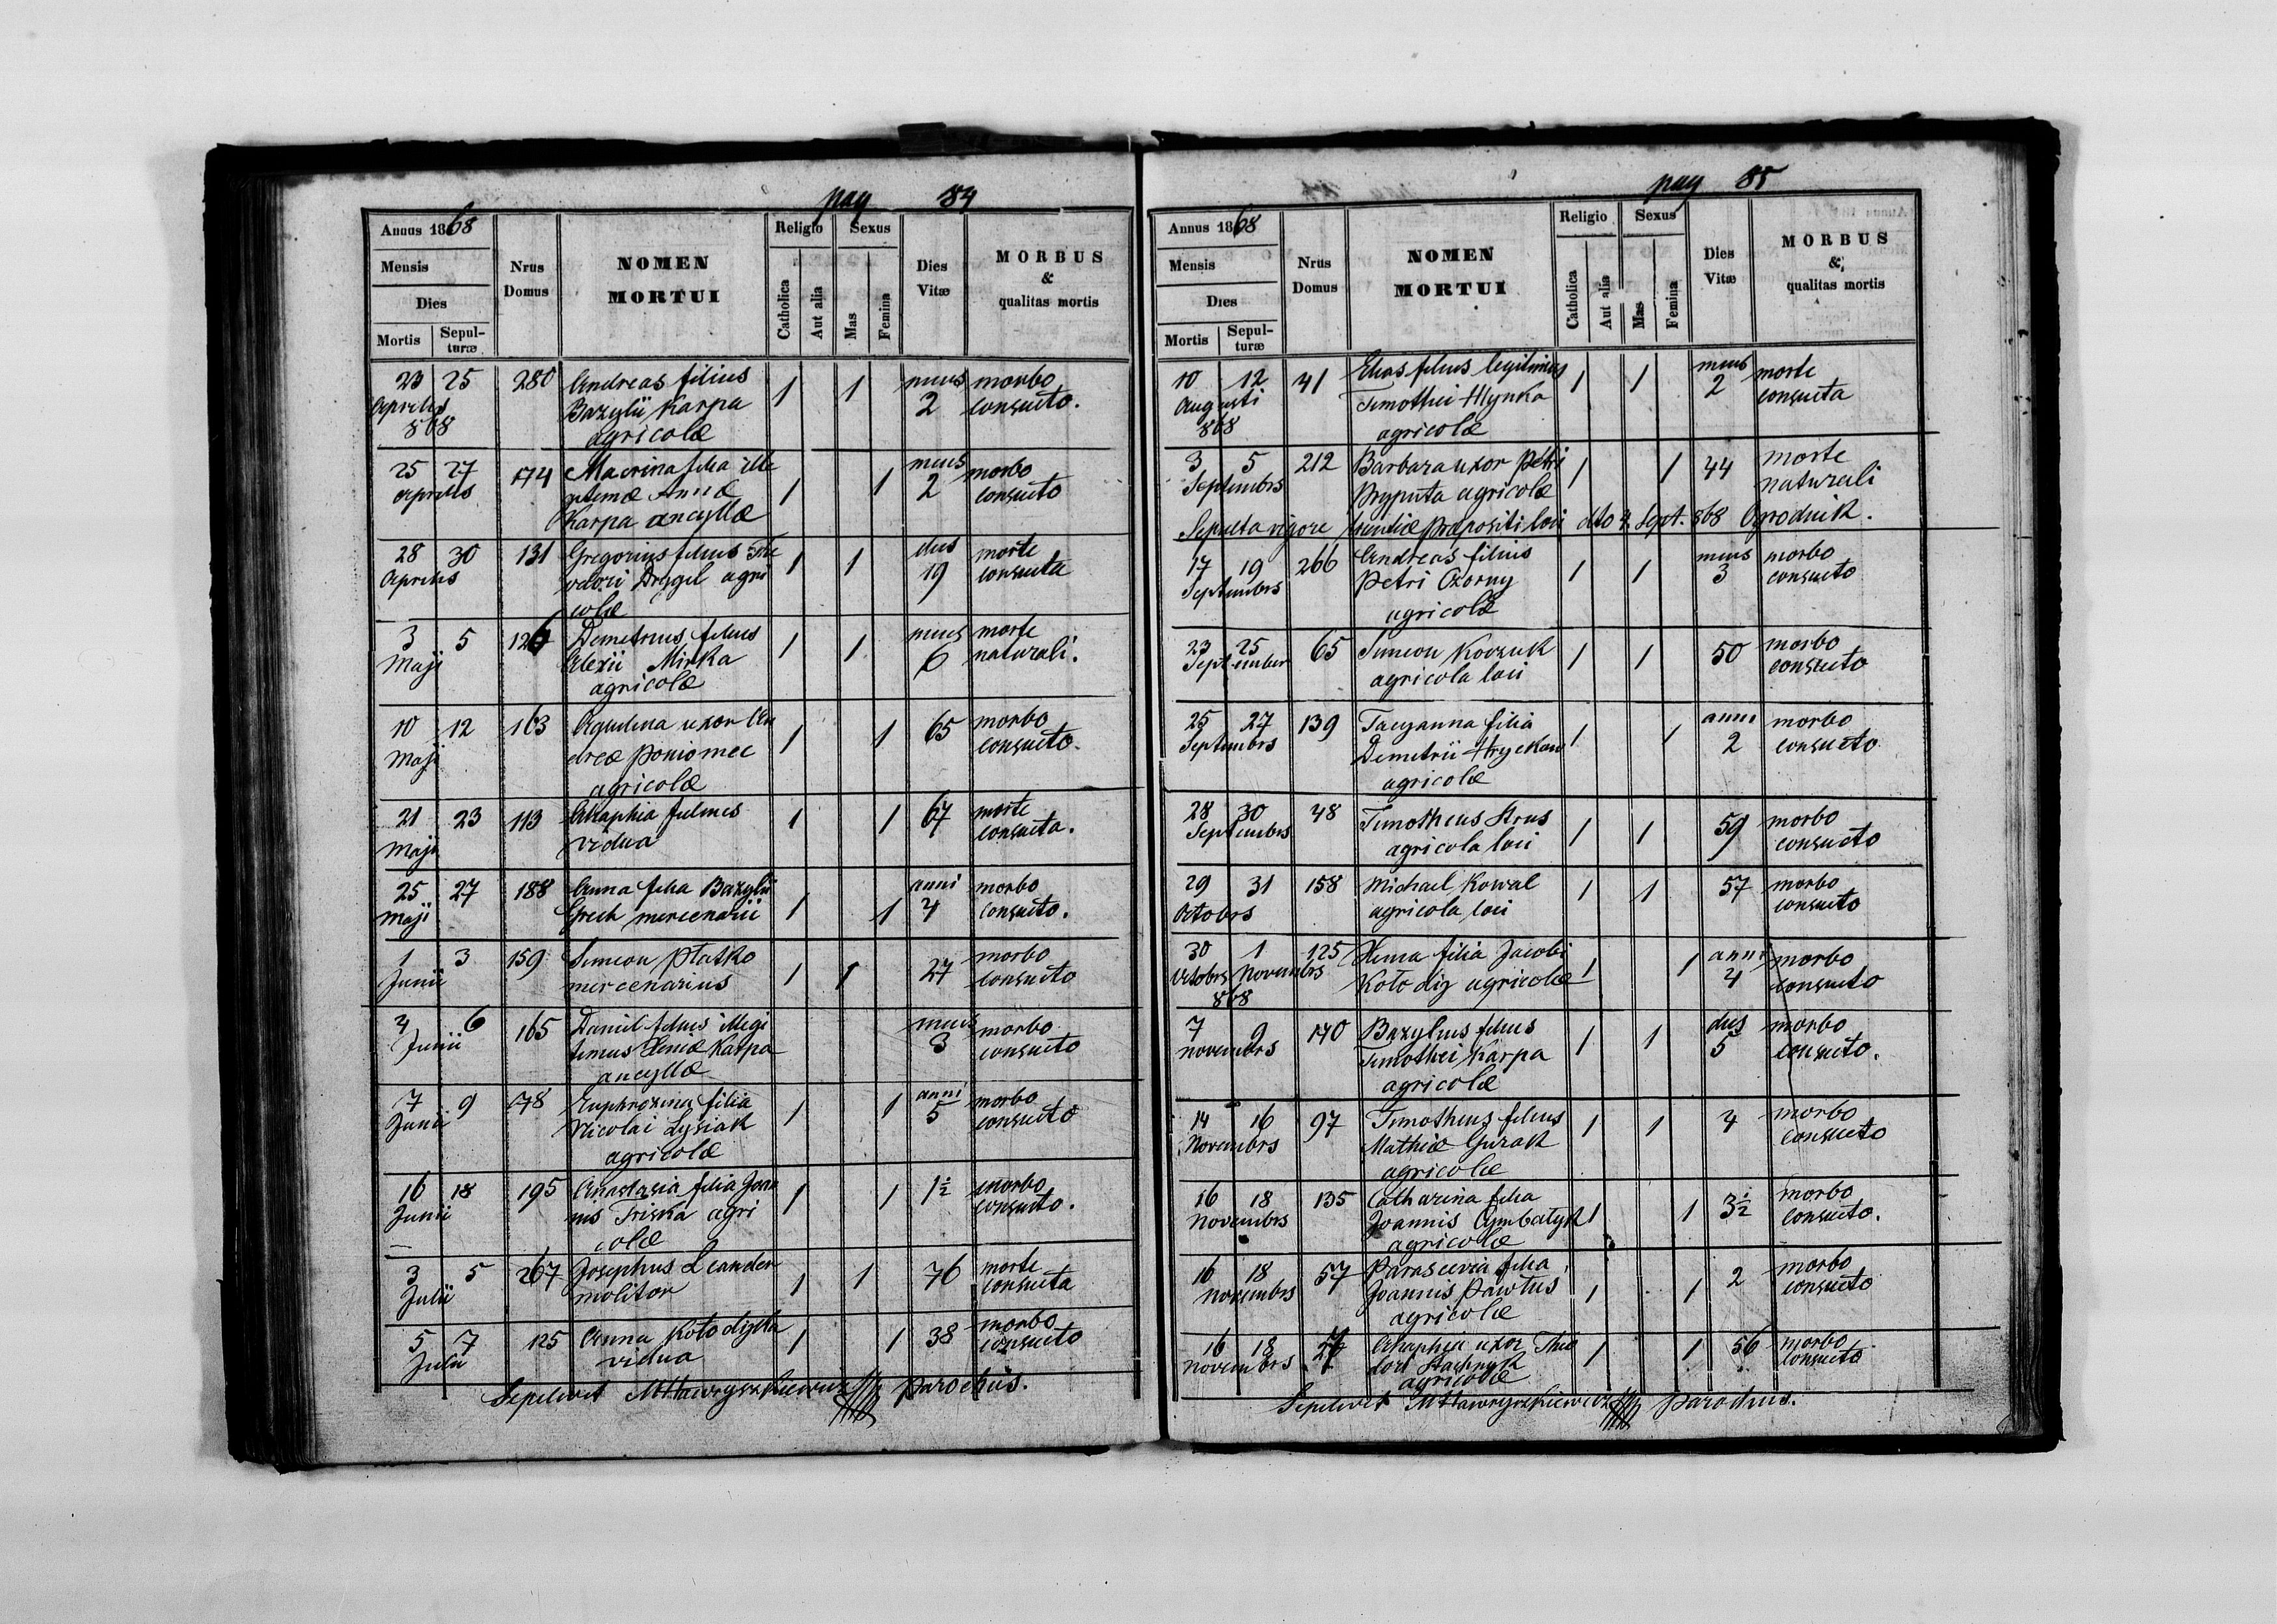 pag 84
Annus 1868
Mensis
Dies
Mortis
Sepul-
turæ
Nrus
Domus
NOMEN
MORTUI
Religio
Catholica
Aut alia
Sexus
Mas
Femina
Dies
Vitæ
MORBUS
&
qualitas mortis
23 25 280 Andreas filius 1 1 mens morbo
Aprilis Bazylii Karpa 2 consueto.
868 agricolæ
25 27 174 Macrina filia ille mens morbo
Aprilis gitimæ Annæ 1 1 2 consueto
Karpa ancyllæ
28 30 131 Gregorius filius The 1 1 dies morte
Aprilis odori Drygel agri 19 consueta
colæ
3 5 126 Demetrius filius 1 1 mens morte
Maji Alexii Mirka 6 naturali.
agricolæ
10 12 163 Aquilina uxor An 1 1 65 morbo
Maji dreæ Poniomec consueto.
agricolæ
21 23 113 Ahaphia 1 1 67 morte
Maji vidua consueta.
25 27 188 Anna filia Bazylii anni morbo
Maji Grech mercenarii 1 1 4 consueto.
1 3 159 Simeon Ptasko 1 1 27 morbo
Junii mercenarius consueto
4 6 165 Daniel filius illegi mens morbo
Junii timus Karpa 3 consueto
ancyllæ
7 9 178 Euphrozina filia 1 1 anni morbo
Junii Nicolai Lysiak 5 consueto
agricolæ
16 18 195 Anastasia filia Joan 1 1 1½ morbo
Junii nis Triska agri consueto.
colæ
3 5 267 Josephus Leander 1 1 76 morte
Julii molitor consueta
5 7 125 Anna Kotodijka 1 1 38 morbo
Julii vidua consueto
Sepelivit MHawryszkiewicz parochus.
pag 85
Annus 1868
Mensis
Dies
Mortis
Sepul-
turæ
Nrus
Domus
NOMEN
MORTUI
Religio
Catholica
Aut alia
Sexus
Mas
Femina
Dies
Vitæ
MORBUS
&
qualitas mortis
10 12 41 Elias filius legitimus 1 1 mens morte
Augusti Timothei Hlynka 2 consueta
868 agricolæ
3 5 212 Barbara uxor Petri 1 1 44 morte
Septembris Pryputa agricolæ naturali
Sepulta vigore præpositi loci dto 4 Sept. 868 Ogrodnik.
17 19 266 Andreas filius 1 1 mens morbo
Septembris Petri Czorny 3 consueto
agricolæ
23 25 65 Simeon Kovzuk 1 1 50 morbo
September agricola loci consueto
25 27 139 Tacyanna filia 1 1 anni morbo
Septembris Demetrii Hryckow 2 consueto
agricolæ
28 30 48 Timotheus Strus 1 1 59 morbo
Septembris agricola loci consueto
29 31 158 Michael Kowal 1 1 57 morbo
Octobris agricola loci consueto
30 1 125 Xenia filia Jacobi 1 1 anni morbo
Octobris Novembris Kotodij agricolæ 4 consueto
868
7 9 170 Bazylius filius 1 1 dies morbo
Novembris Timothei Karpa 5 consueto.
agricolæ
14 16 97 Timotheus filius 1 1 4 morbo
Novembris Mathiæ Gurak consueto
agricolæ
16 18 135 Catharina filia 1 1 3½ morbo
Novembris Joannis Cymbatyk consueto.
agricolæ
16 18 57 Parascevia filia 1 1 2 morbo
Novembris Joannis Pawtus consueto
agricolæ
16 18 Ahaphia uxor Theo 1 1 56 morbo
Novembris dori Stachnyk consueto
agricolæ
Sepelivit MHawryszkiewicz parochus.